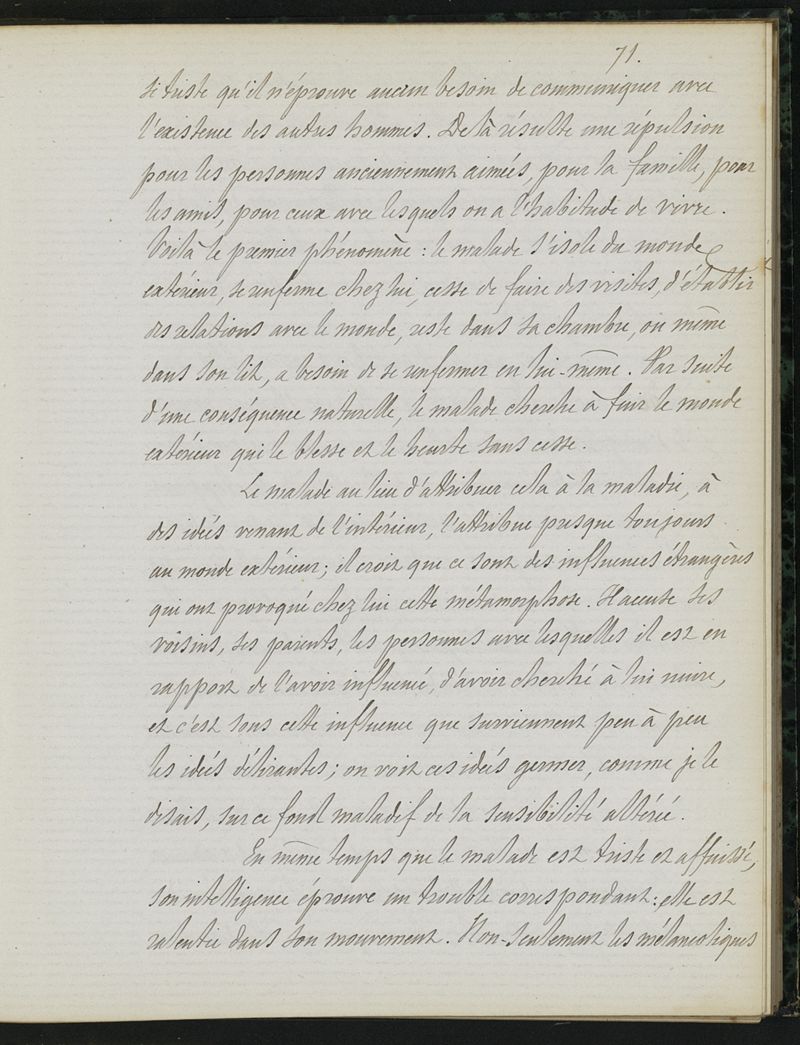 71.
si triste qu'il n'éprouve aucun besoin de communiquer avec
l'existence des autres hommes. De là résulte une répulsion
pour les personnes anciennement aimées, pour la famille, pour
les amis, pour ceux avec lesquels on a l'habitude de vivre.
Voilà le premier phénomène : le malade s'isole du monde
extérieur, se renferme chez lui, cesse de faire des visites, d'établir
des relations avec le monde, reste dans sa chambre, ou même
dans son lit, a besoin de se renfermer en lui-même. Par suite
d'une conséquence naturelle, le malade cherche à fuir le monde
extérieur qui le blesse et le heurte sans cesse.
Le malade au lieu d'attribuer cela à la maladie, à
des idées venant de l'intérieur, l'attribue presque toujours
au monde extérieur ; il croit que ce sont des influences étrangères
qui ont provoqué chez lui cette métamorphose. Il accuse ses
voisins, ses parents, les personnes avec lesquelles il est en
rapport de l'avoir influencé, d'avoir cherché à lui nuire,
et c'est sous cette influence que surviennent peu à peu
les idées délirantes ; on voit ces idées germer, comme je le
disais, sur ce fond maladif de la sensibilité altérée.
En même temps que le malade est triste et affaissé,
son intelligence éprouve un trouble correspondant : elle est
ralentie dans son mouvement. Non-seulement les mélancoliques